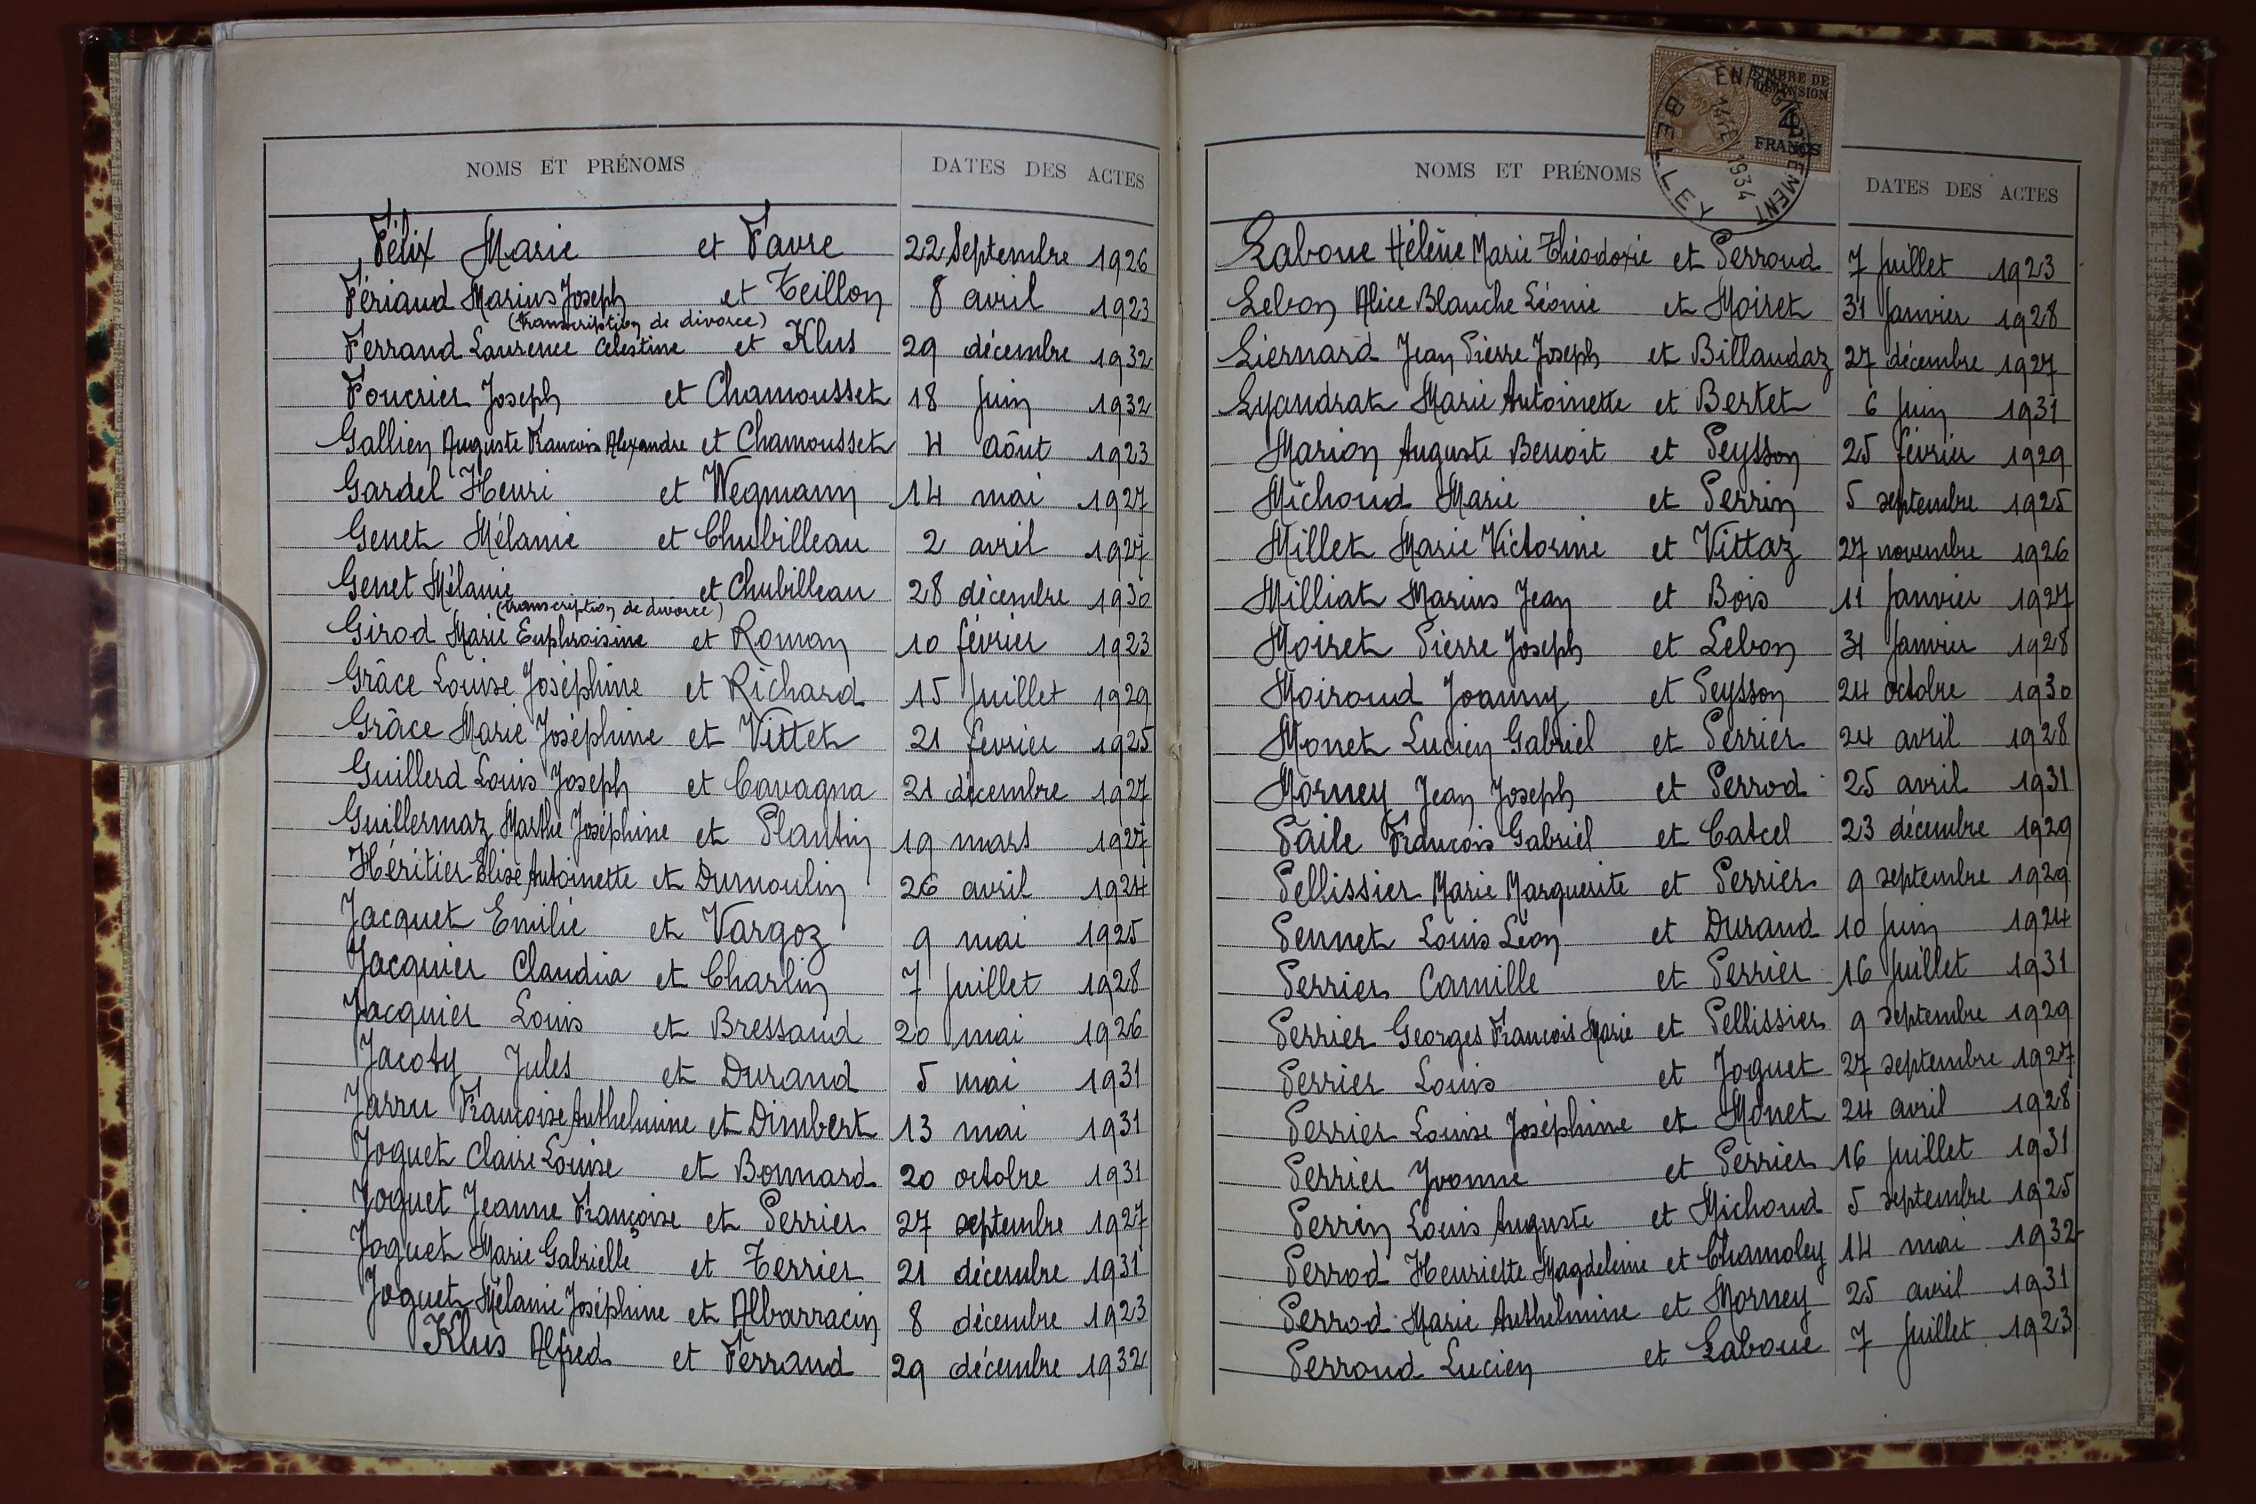 NOMS ET PRÉNOMS DATES DES ACTES
Félix Marie et Favre 22 Septembre 1926
Fériaud Marius Joseph et Teillon 8 avril 1923
(transcription de divorce)
Ferrand Laurence Célestine et Klus 29 décembre 1932
Foucrier Joseph et Chamousset 18 Juin 1932
Gallien Auguste Francois Alexandre et Chamousset 4 Aôut 1923
Gardel Henri et Wegmann 14 mai 1927
Genet Mélanie et Chubilleau 2 avril 1927
Genet Mélanie et Chubilleau 28 décembre 1930
(transcription de divorce)
Girod Marie Euphraisine et Roman 10 février 1923
Grâce Louise Joséphine et Richard 15 Juillet 1929
Grâce Marie Joséphine et Vittet 21 février 1925
Guillerd Louis Joseph et Cavagna 21 décembre 1927
Guillermaz Marthe Joséphine et Plantin 19 mars 1927
Héritier Élise Antoinette et Dumoulin 26 avril 1924
Jacquet Emilie et Vargoz 9 mai 1925
Jacquier Claudia et Charlin 7 Juillet 1928
Jacquier Louis et Bressand 20 mai 1926
Jacoty Jules et Durand 5 mai 1931
Jarru Françoise Anthelmine et Dimbert 13 mai 1931
Joguet Claire Louise et Bonnard 20 octobre 1931
Joguet Jeanne Françoise et Perrier 27 septembre 1927
Joguet Marie Gabrielle et Terrier 21 décembre 1931
Joguet Mélanie Joséphine et Albarracin 8 décembre 1923
Klus Alfred et Ferrand 29 décembre 1932
TIMBRE DE
DIMENSION
4
FRANCS
BELLEY
1934
NOMS ET PRÉNOMS DATES DES ACTES
Laboue Hélène Marie Théodorie et Perroud 7 Juillet 1923
Lebon Alice Blanche Léonie et Moiret 31 Janvier 1928
Liernard Jean Pierre Joseph et Billaudaz 27 décembre 1927
Lyandrat Marie Antoinette et Bertet 6 Juin 1931
Marion Auguste Benoit et Peysson 25 février 1929
Michoud Marie et Perrin 5 septembre 1925
Millet Marie Victorine et Vittaz 27 novembre 1926
Milliat Marius Jean et Bois 11 Janvier 1927
Moiret Pierre Joseph et Lebon 31 Janvier 1928
Moiroud Joanny et Peysson 24 octobre 1930
Monet Lucien Gabriel et Perrier 24 avril 1928
Morney Jean Joseph et Perrod 25 avril 1931
Paile Francois Gabriel et Catcel 23 décembre 1929
Pellissier Marie Marguerite et Perrier 9 septembre 1929
Pennet Louis Léon et Durand 10 Juin 1924
Perrier Camille et Perrier 16 Juillet 1931
Perrier Georges Francois Marie et Pellissier 9 septembre 1929
Perrier Louis et Joguet 27 septembre 1927
Perrier Louise Joséphine et Monet 24 avril 1928
Perrier Yvonne et Perrier 16 Juillet 1931
Perrin Louis Auguste et Michoud 5 septembre 1925
Perrod Henriette Magdeleine et Chamoley 14 mai 1932
Perrod Marie Anthelmine et Morney 25 avril 1931
Perroud Lucien et Laboue 7 Juillet 1923